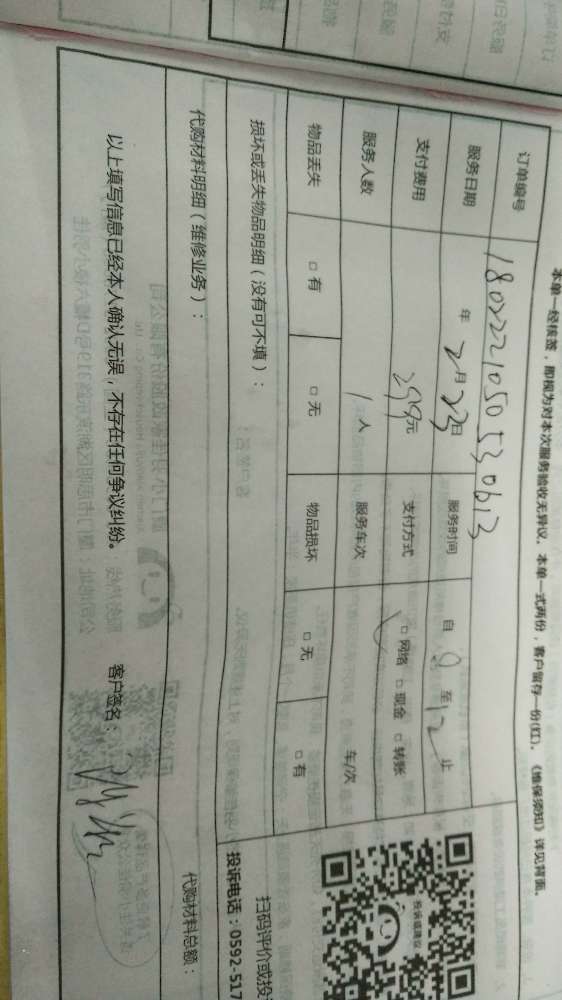 本单一经核签，即视为对本次服务验收无异议，本单一式两份，客户留存一份(红)，《维保须知》详见背面。
订单编号 18022210505530613
服务日期 年 2月23日 服务时间 自 9 至 12 止
支付费用 299元 支付方式 □ 网络 □ 现金 □ 转账
服务人数 1 人 服务车次 车/次
物品丢失 □ 有 □ 无 物品损坏 □ 无 □ 有
损坏或丢失物品明细（没有可不填）：
代购材料明细（维修业务）：
代购材料总额：
以上填写信息已经本人确认无误，不存在任何争议纠纷。
客户签名：
投诉或建议
扫码评价或投
投诉电话：0592-517